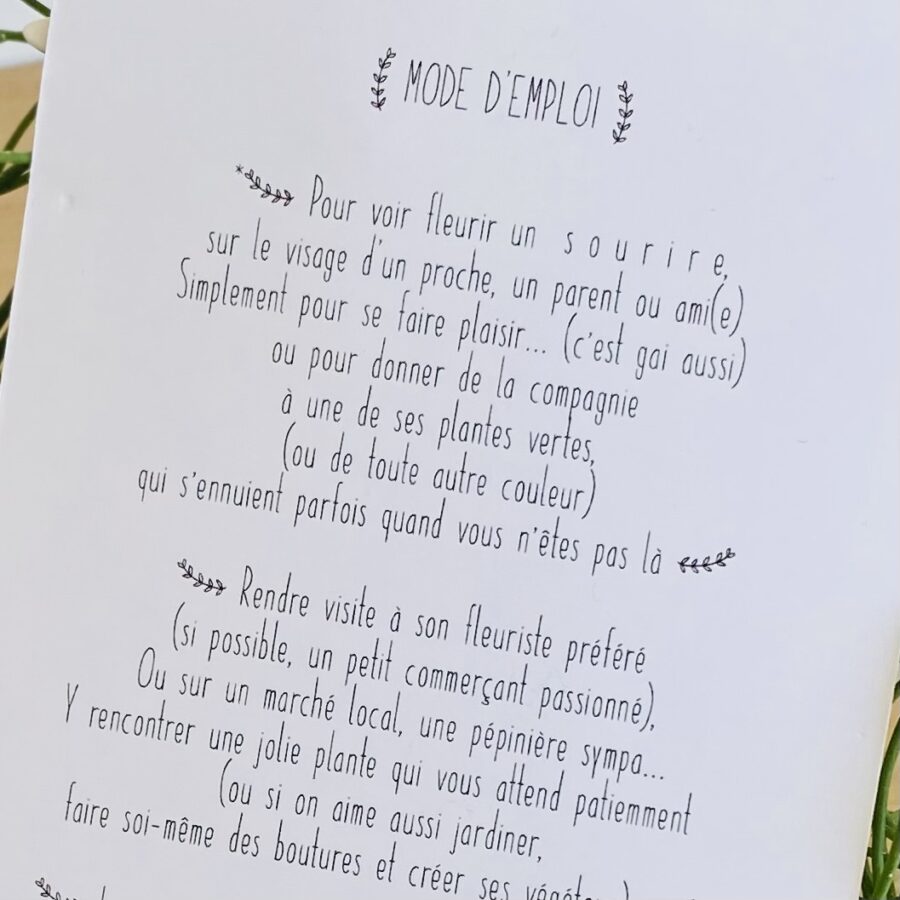 MODE D'EMPLOI
* Pour voir fleurir un sourire,
sur le visage d'un proche, un parent ou ami(e)
Simplement pour se faire plaisir... (c'est gai aussi)
ou pour donner de la compagnie
à une de ses plantes vertes,
(ou de toute autre couleur)
qui s'ennuient parfois quand vous n'êtes pas là
Rendre visite à son fleuriste préféré
(si possible, un petit commerçant passionné),
Ou sur un marché local, une pépinière sympa...
Y rencontrer une jolie plante qui vous attend patiemment
(ou si on aime aussi jardiner,
faire soi-même des boutures et créer ses